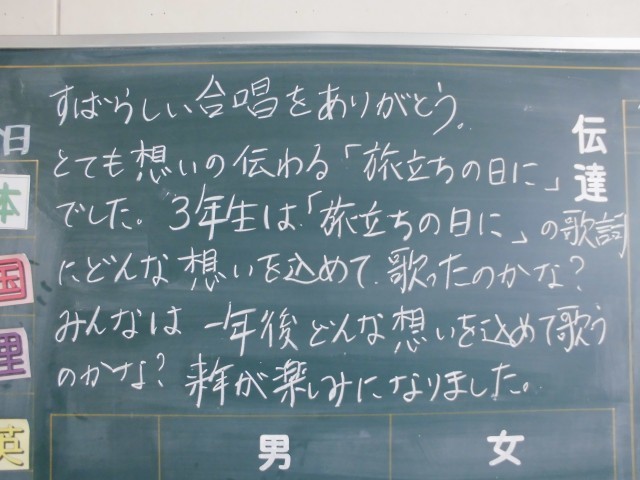 すばらしい合唱をありがとう。
とても想いの伝わる「旅立ちの日に」
でした。3年生は「旅立ちの日に」の歌詞
にどんな想いを込めて歌ったのかな?
みんなは一年後どんな想いを込めて歌う
のかな?来年が楽しみになりました。
伝達
日
体
国
理
英
男
女